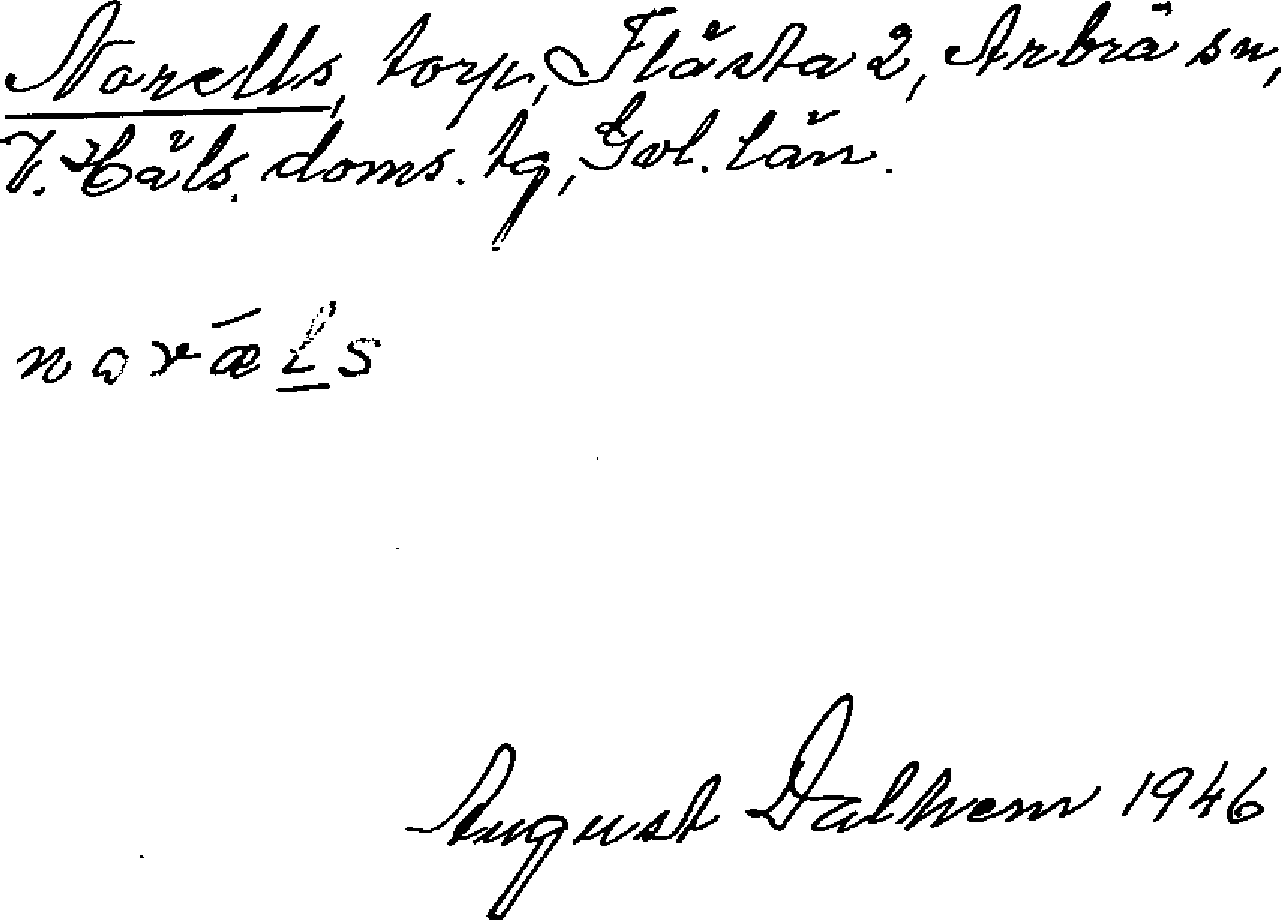 Norells, torp, Flästa 2, Arbrå sn,
V. Häls. doms. tg, Gvl. län.
norǽls
August Dalhem 1946